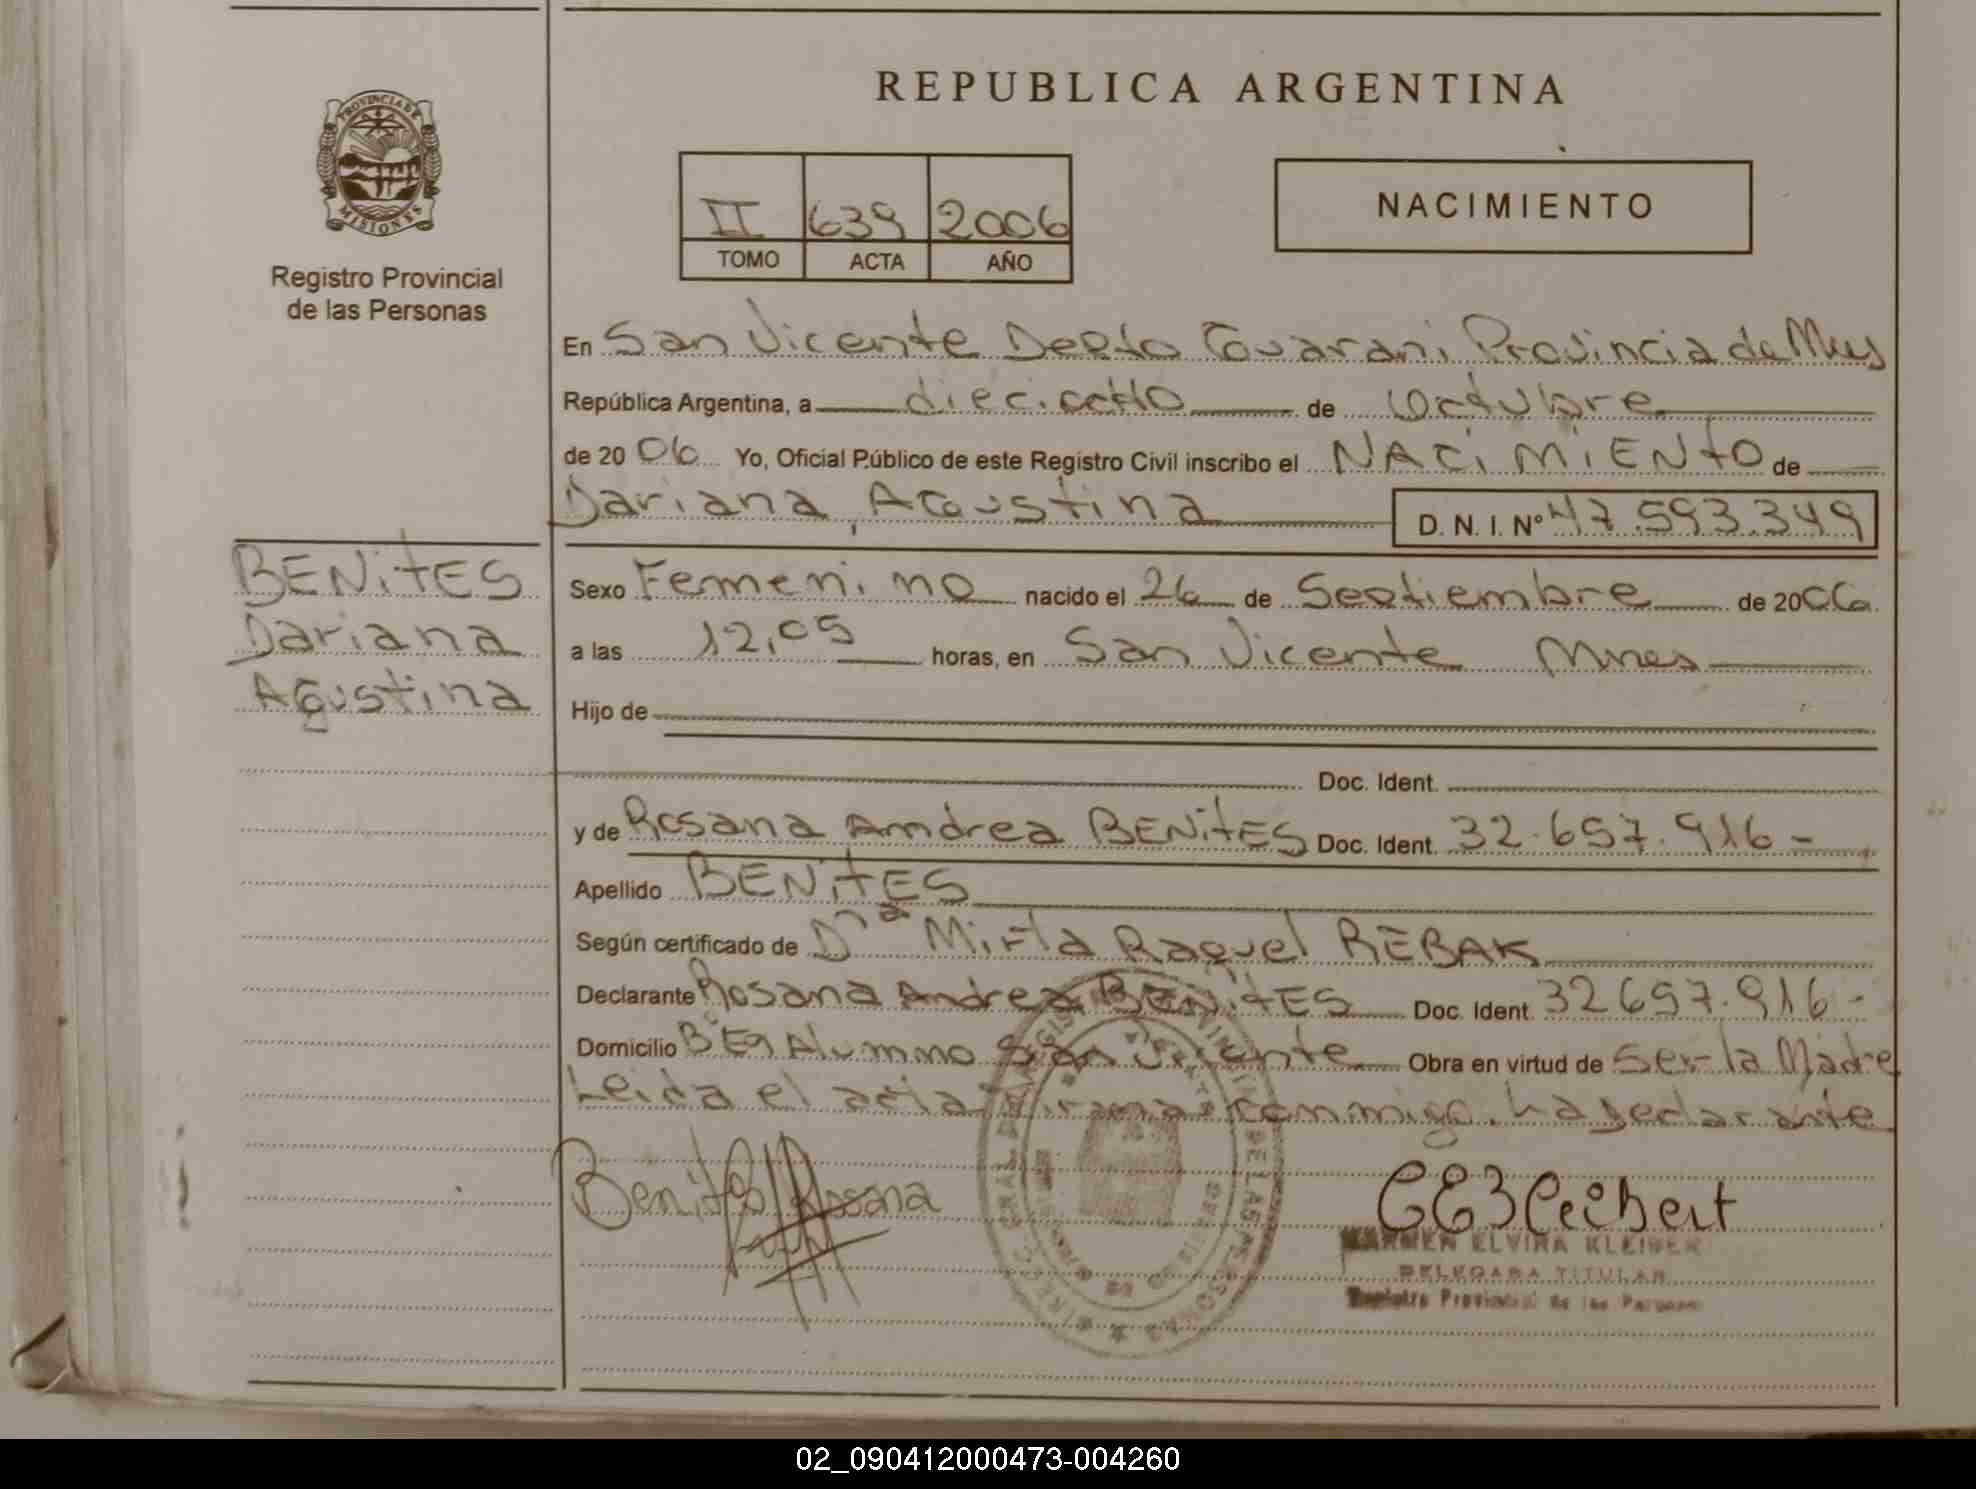 REPUBLICA ARGENTINA
PROVINCIA DE
MISIONES
Registro Provincial
de las Personas
II 639 2006
TOMO ACTA AÑO
NACIMIENTO
En San Vicente Depto Guarani Provincia de Mnes
República Argentina, a dieciocho de Octubre
de 2006 Yo, Oficial Público de este Registro Civil inscribo el NACiMiENtO de
Dariana, Agustina D. N. I. Nº 47.593.349
BENitES
Dariana
Agustina
Sexo Femenino nacido el 26 de Septiembre de 2006
a las 12,05 horas, en San Vicente Mnes
Hijo de
Doc. Ident.
y de Rosana Andrea BENitES Doc. Ident. 32.657.916-
Apellido BENitES
Según certificado de Dra Mirta Raquel REBAK
Declarante Rosana Andrea BENitES Doc. Ident. 32657.916-
Domicilio Bº Ex Alumno San Vicente Obra en virtud de Ser la Madre
Leida el acta firma conmigo la declarante
Benites Rosana
CARMEN ELVIRA KLEIBER
DELEGADA TITULAR
Registro Provincial de las Personas
02_090412000473-004260